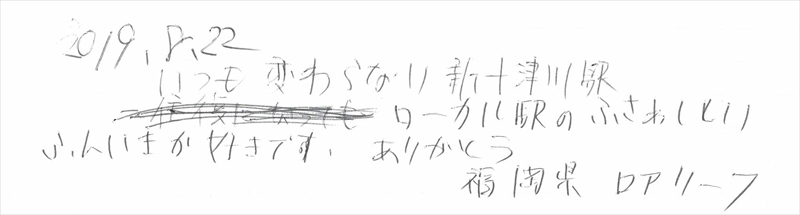 2019.8.22
いつも変わらない新十津川駅
ローカル駅のふさわしい
ふんいきが好きです。ありがとう
福岡県 ロアリーフ